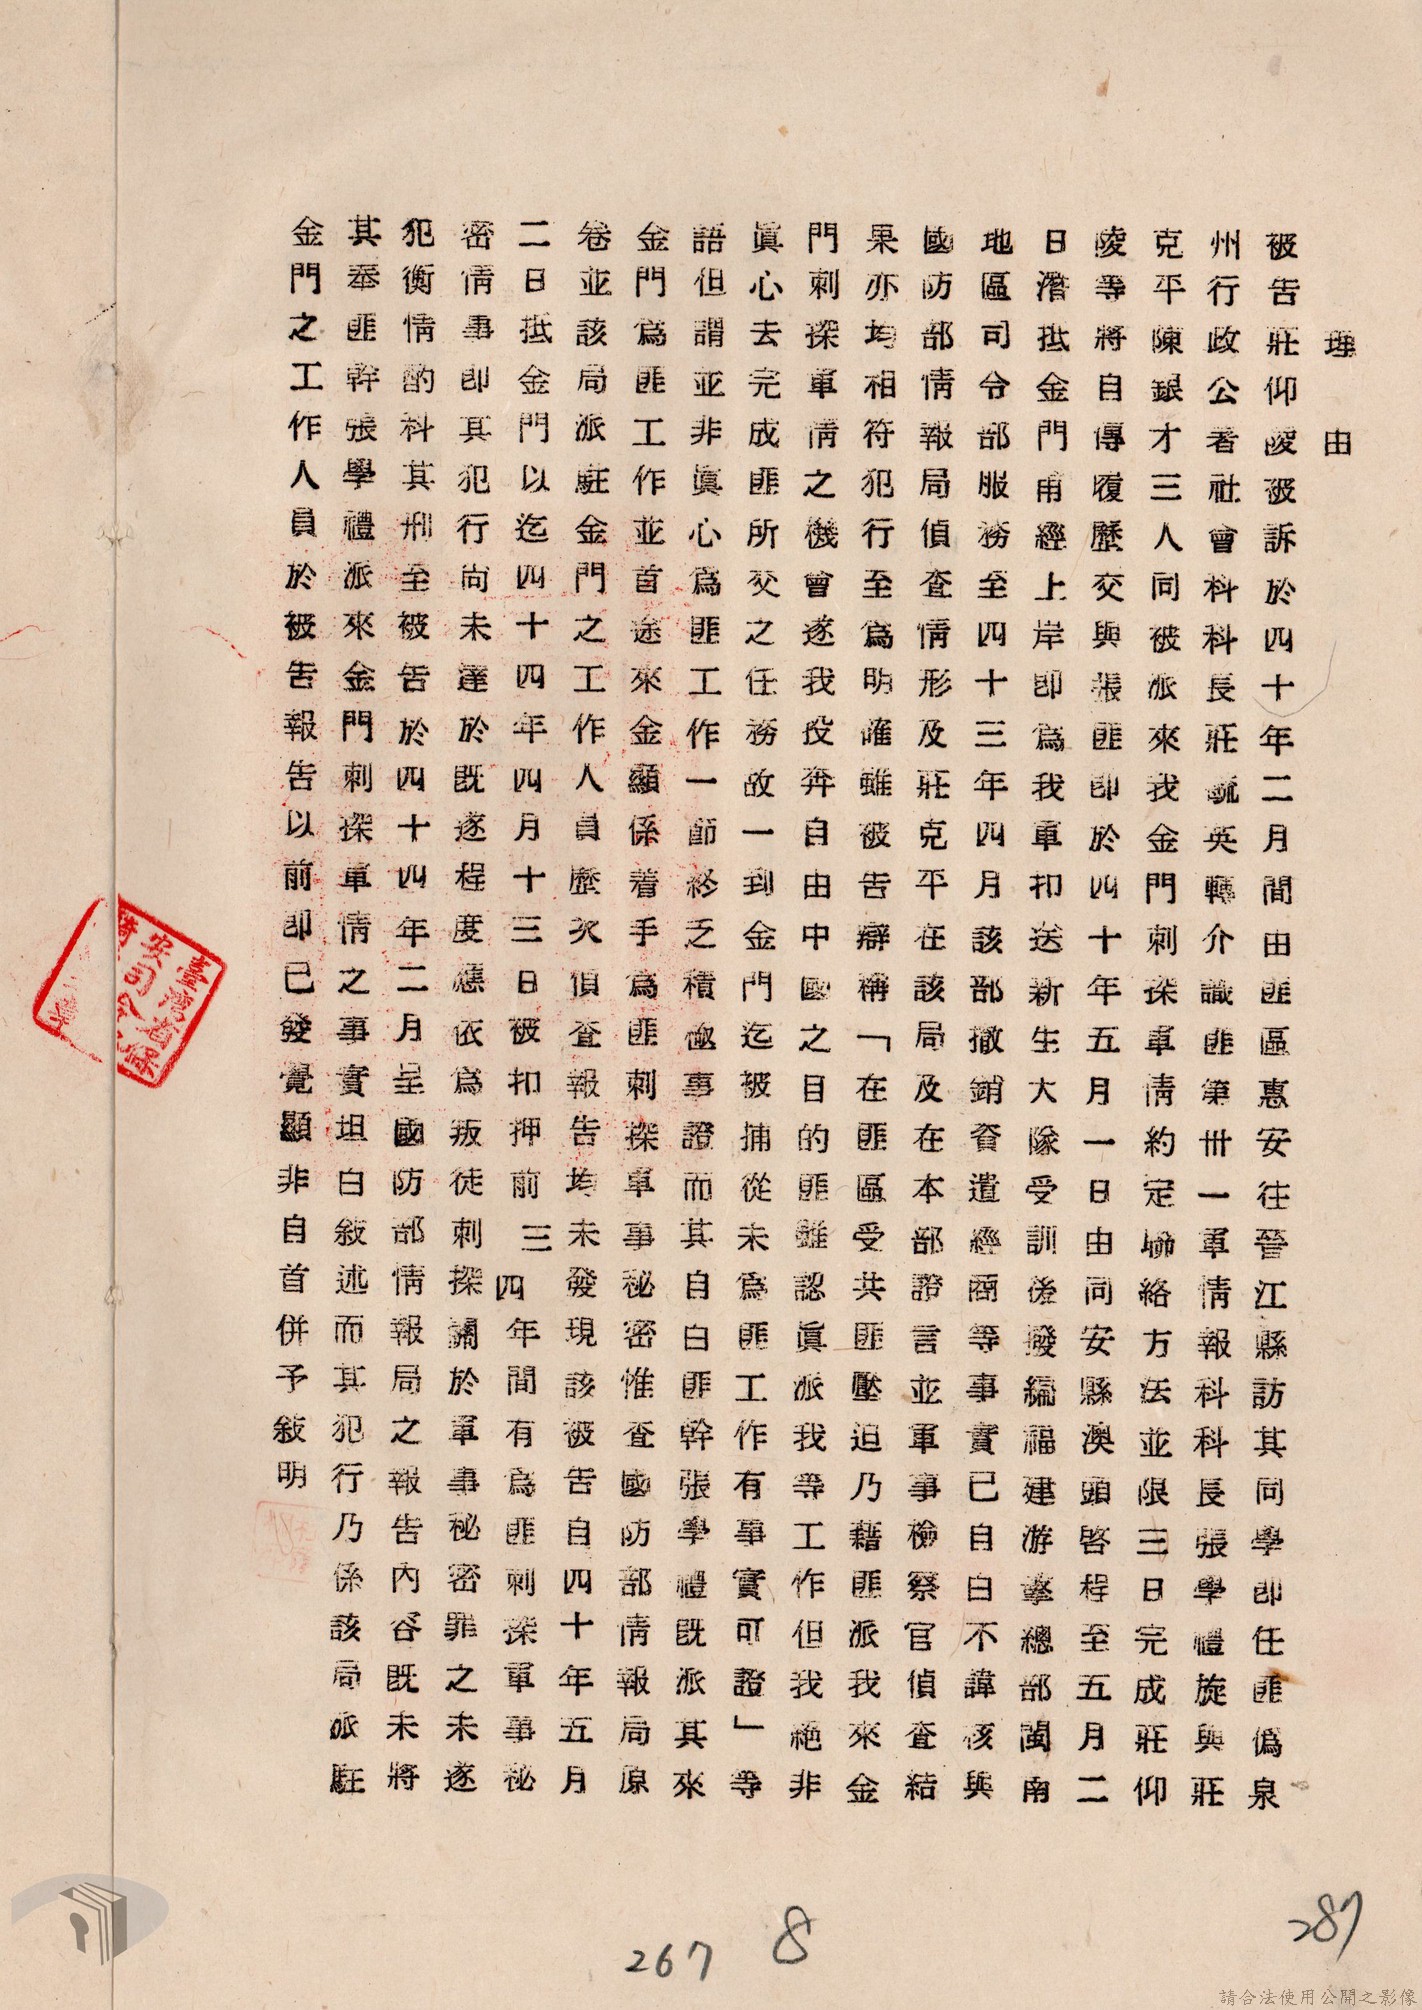 理由
被告莊仰陵被訴於四十年二月間由匪區惠安往晉江縣訪其同學即任匪偽泉
州行政公署社會科科長莊毓英轉介識匪第卅一軍情報科科長張學禮旋與莊
克平陳銀才三人同被派來我金門刺探軍情約定聯絡方法並限三日完成莊仰
陵等將自傳履歷交與張匪即於四十年五月一日由同安縣澳頭啓程至五月二
日潛抵金門甫經上岸即為我軍扣送新生大隊受訓後撥編福建游擊總部閩南
地區司令部服務至四十三年四月該部撤銷資遣經商等事實已自白不諱核與
國防部情報局偵查情形及莊克平在該局及在本部證言並軍事檢察官偵查結
果亦均相符犯行至為明確雖被告辯稱「在匪區受共匪壓迫乃藉匪派我來金
門刺探軍情之機會遂我投奔自由中國之目的匪雖認眞派我等工作但我絕非
眞心去完成匪所交之任務故一到金門迄被捕從未為匪工作有事實可證」等
語但謂並非眞心為匪工作一節終乏積極事證而其自白匪幹張學禮既派其來
金門為匪工作並首途來金顯係着手為匪刺探軍事秘密惟查國防部情報局原
卷並該局派駐金門之工作人員歷次偵查報告均未發現該被告自四十年五月
二日抵金門以迄四十四年四月十三日被扣押前三四年間有為匪刺探軍事秘
密情事即其犯行尚未達於既遂程度應依為叛徒刺探關於軍事秘密罪之未遂
犯衡情酌科其刑至被告於四十四年二月呈國防部情報局之報告內容既未將
其奉匪幹張學禮派來金門刺探軍情之事實坦白敍述而其犯行乃係該局派駐
金門之工作人員於被告報告以前即已發覺顯非自首併予敍明
臺灣省保安司令
287
8
267
請合法使用公開之影像